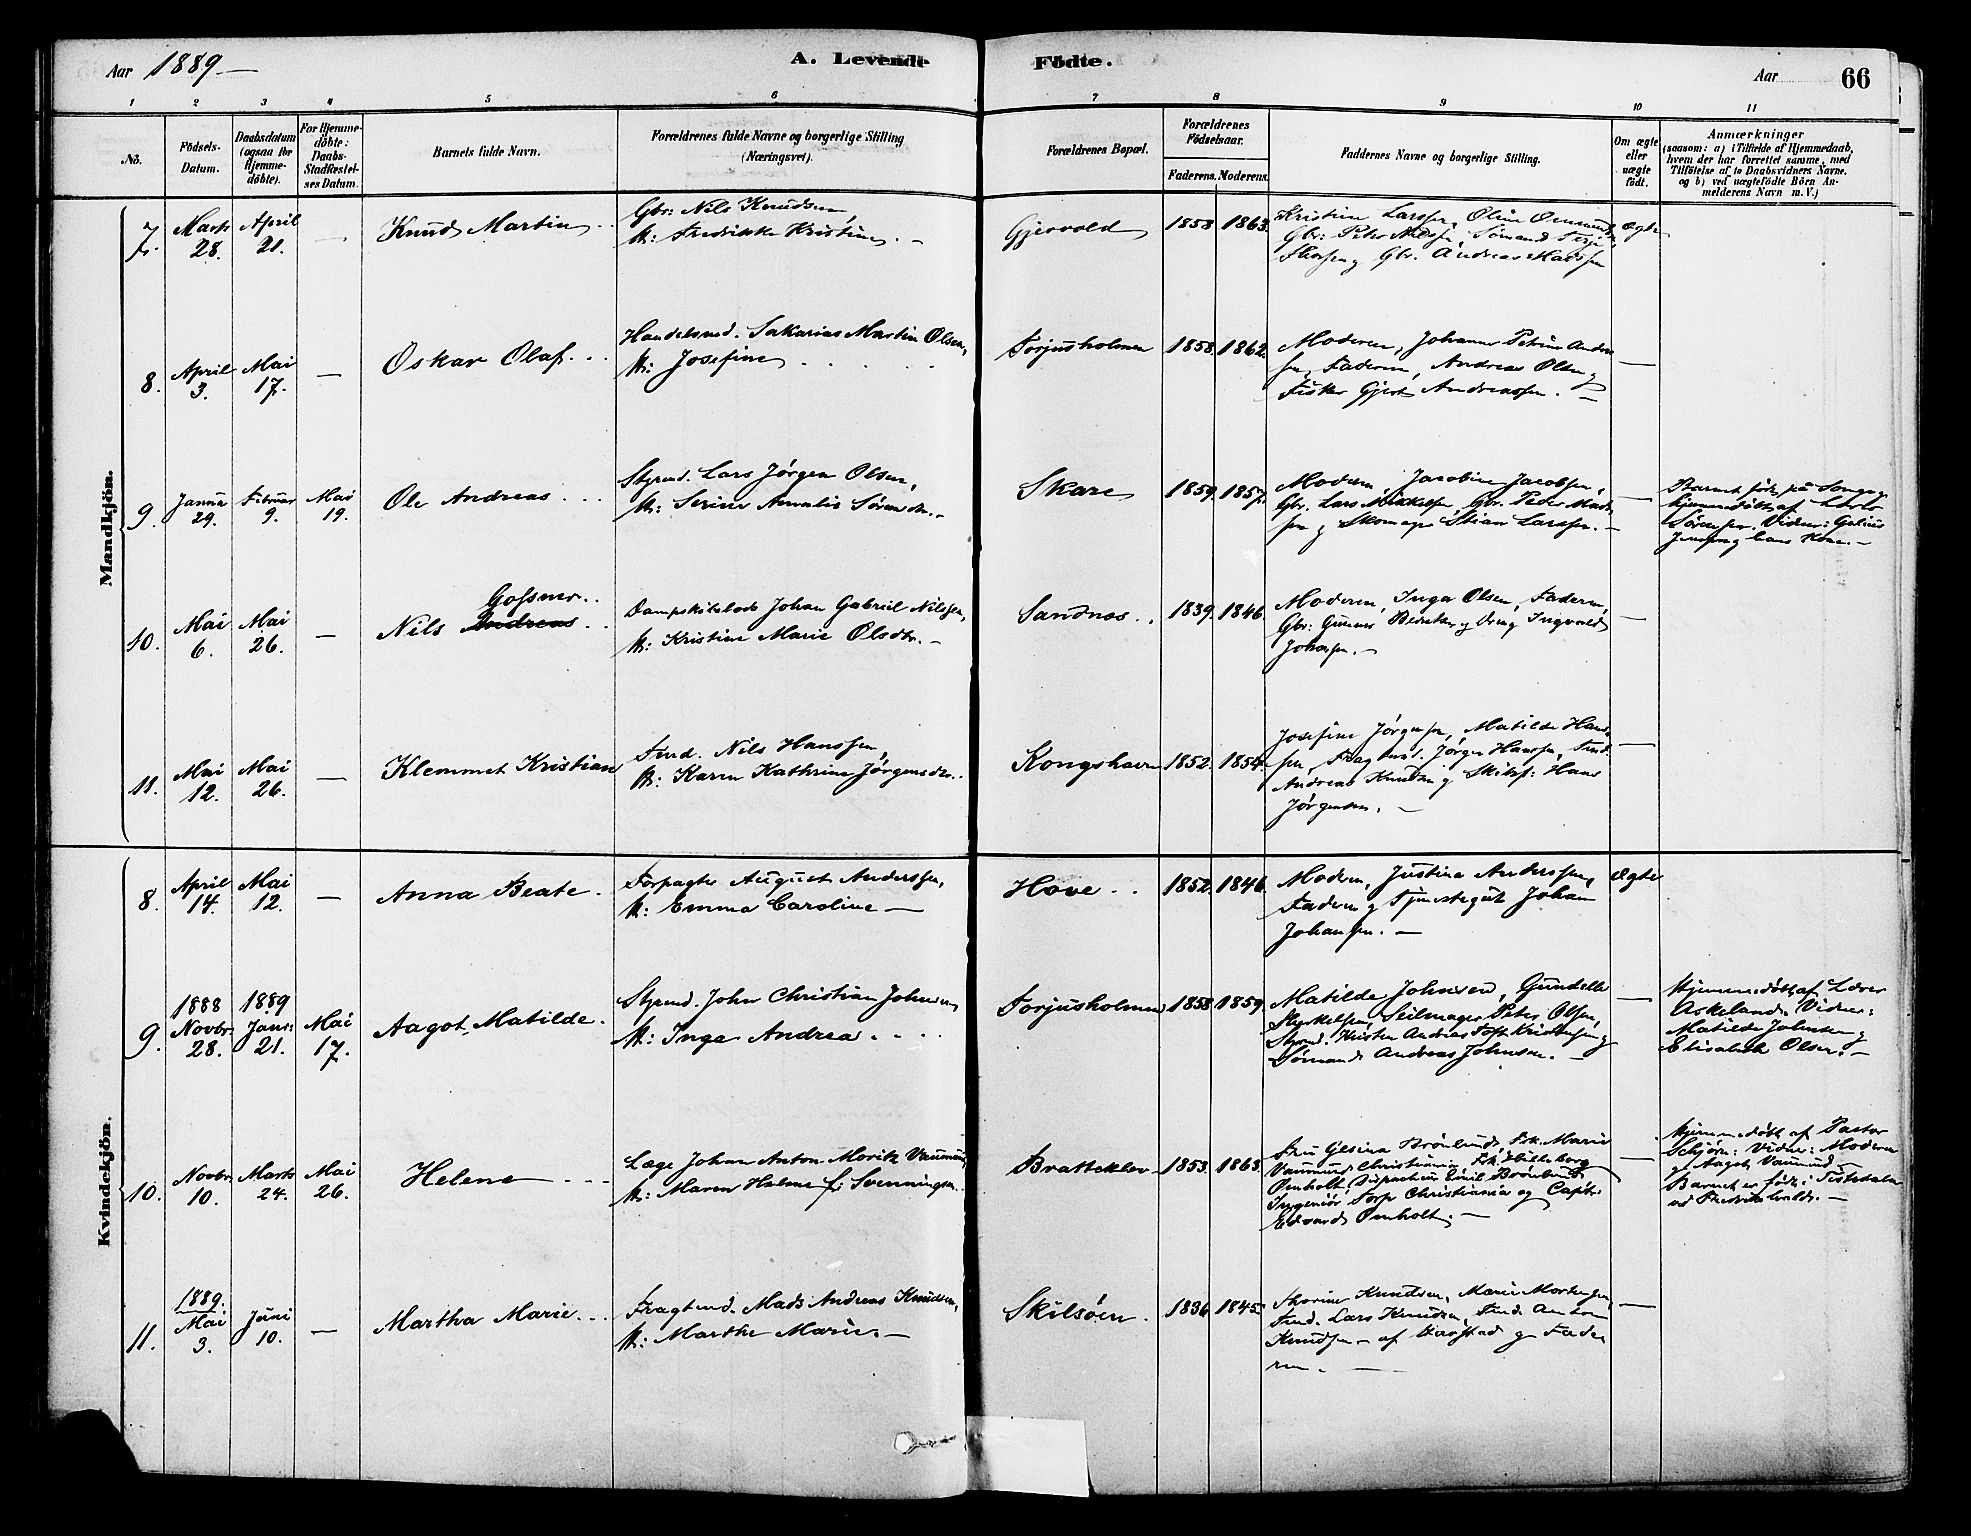 Aar 1889 —
A. Levende Födte.
Aar 66
1 2 3 4 5 6 7 8 9 10 11
No.
Födsels-Datum.
Daabsdatum (ogsaa for Hjemme-döbte).
For Hjemme-döbte: Daabs-Stadfæstel-ses Datum.
Barnets fulde Navn.
Forældrenes fulde Navne og borgerlige Stilling (Næringsvei).
Forældrenes Bopæl.
Forældrenes Födselsaar.
Faderens. Moderens.
Faddernes Navne og borgerlige Stilling.
Om ægte eller uægte födt.
Anmærkninger
(saasom: a) i Tilfælde af Hjemmedaab,
hvem der har forrettet samme, med
Tilföielse af to Daabsvidners Navne.
og b) ved uægtefödte Börn An-
melderens Navn m. V.)
Mandkjön.
7. Marts 28. April 21. — Knud Martin
Gbr: Nils Knudsen
H: Fredrikke Kristine
Gjervold 1858. 1863.
Kristine Larssen, Oline
Gbr: Peder Nilssen, Sömand Terje
Gbr. Andreas Madssen
Ægte
8. April 3. Mai 17. — Oskar Olaf
Handelsmd. Sakarias Martin Olsen,
H: Josefine
Torjusholmen 1858. 1862.
Moderen, Johanne Petrine Anders
sen, Faderen, Andreas Olsen og
Fisker Gjert Andreassen. —
—
9. Januar 29. Februar 9. Mai 19. Ole Andreas
Styrmd. Lars Jörgen Olsen,
H: Serine Amalie Sörensdr. —
Skare 1859. 1857.
Moderen, Jacobine Jacobsen,
Gbr. Lars Mikkelsen, Gbr. Peder Mad
sen og Skomager Stian Larssen. —
—
Barnet födt på Songe,
hjemmedöbt af
Sörensen. Vidner:
og hans Kone. —
10. Mai 6. Mai 26. — Nils Andreas Gossner
Dampskibslods Johan Gabriel Nilssen,
H: Kristine Marie Olsdtr. —
Sandnes 1839. 1846.
Moderen, Inga Olsen, Faderen,
Gbr: Gunnar og Dreng Ingvald
Johansen. —
—
11. Mai 12. Mai 26. — Klemmet Kristian
Nils Hanssen,
H: Karen Kathrine Jörgensdtr.
Kongshavn 1852. 1854.
Josefine Jörgensen, Matilde Hans
sen, Fragtmd. Jörgen Hanssen,
Andreas Knudsen og Skibsf: Hans
Jörgensen. —
—
Kvindekjön.
8. April 14. Mai 12. — Anna Beate
Forpagter August Anderssen,
H: Emma Caroline —
Hove 1852. 1846.
Moderen, Justina Anderssen,
Faderen og Tjenestegut Johan
Johansen. —
Ægte
9. 1888 Novbr: 28. 1889 Janr: 21. Mai 17. Aagot Matilde.
Styrmd. John Christian Johnsen
H: Inga Andrea
Torjusholmen 1858. 1859.
Matilde Johnsen, Gunelle
Seilmager Peter Olsen,
Styrmd: Kristen Andreas Kristensen og
Sömand Andreas Johnsen. —
—
Hjemmedöbt af Lærer
Askeland. Vidner:
Matilde Johnsen og
Elisabeth Olsen. —
10. Novbr 10. Marts 24. Mai 26. Helene
Læge Johan Anton Moritz Vaumund,
H: Maren Helene f. Svenningsen.
Bratteklev 1853. 1863.
Fru Gesina Brönlund, Frk. Marie
Vaumund Christiania, Frk. Hilleborg
Omholt, Disponent Emil Brönlund,
Ingeniör Torp Christiania og Capt:
Edvard Omholt. —
—
Hjemmedöbt af Pastor
Schjörn: Vidner: Moderen
og Aagot Vaumund.
Barnet er födt i Tistedalen
ved Fredrikshald. —
11. 1889. Mai 3. Juni 10. — Martha Marie
Fragtmd. Mads Andreas Knudsen,
H: Marthe Marie. —
Skilsöen 1836 1845
Thorine Knudsen, Marie Mortensen,
Lars Knudsen, Anton
Knudsen — af og Fade-
ren. —
—